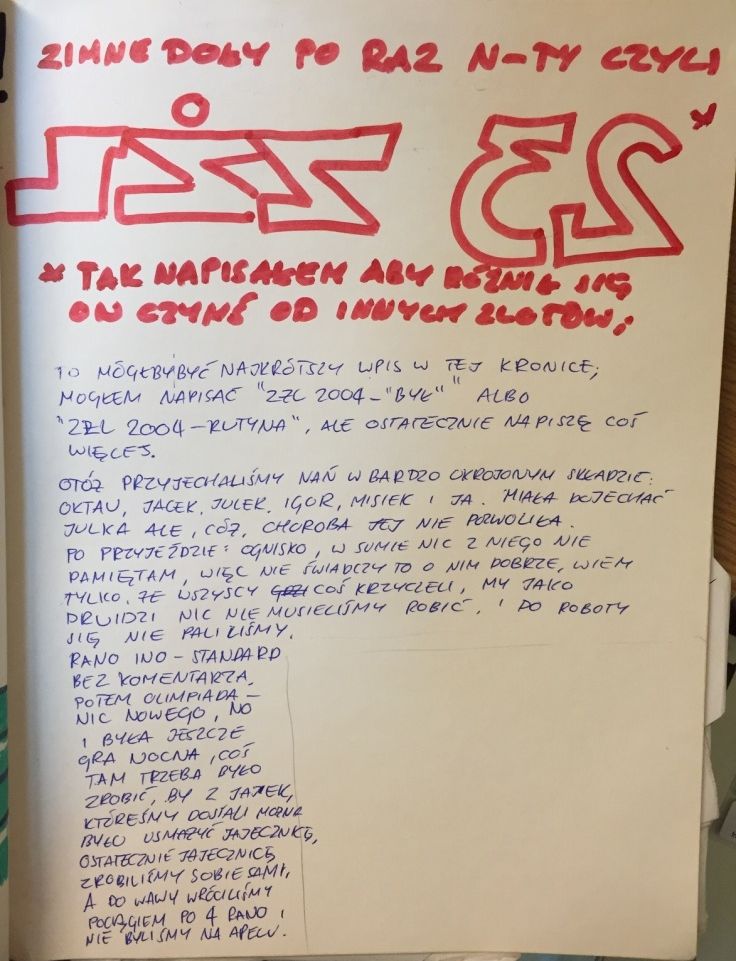 ZIMNE DOŁY PO RAZ N-TY CZYLI
* TAK NAPISAŁEM ABY RÓŻNIŁ SIĘ
ON CZYMŚ OD INNYCH ZLOTÓW;
TO MÓGŁBY BYĆ NAJKRÓTSZY WPIS W TEJ KRONICE;
MOGŁEM NAPISAĆ "ZŻL 2004-"BYŁ"" ALBO
"ZŻL 2004-RUTYNA", ALE OSTATECZNIE NAPISZĘ COŚ
WIĘCEJ.
OTÓŻ PRZYJECHALIŚMY NAŃ W BARDZO OKROJONYM SKŁADZIE:
OKTAU, JACEK, JULEK, IGOR, MISIEK I JA. MIAŁA DOJECHAĆ
JULKA ALE, CÓŻ, CHOROBA JEJ NIE POZWOLIŁA.
PO PRZYJEŹDZIE: OGNISKO, W SUMIE NIC Z NIEGO NIE
PAMIĘTAM, WIĘC NIE ŚWIADCZY TO O NIM DOBRZE, WIEM
TYLKO, ŻE WSZYSCY COŚ KRZYCZELI, MY JAKO
DRUIDZI NIC NIE MUSIELIŚMY ROBIĆ, I DO ROBOTY
SIĘ NIE PALILIŚMY.
RANO INO-STANDARD
BEZ KOMENTARZA,
POTEM OLIMPIADA-
NIC NOWEGO, NO
I BYŁA JESZCZE
GRA NOCNA, COŚ
TAM TRZEBA BYŁO
ZROBIĆ, BY Z JAJEK,
KTÓREŚMY DOSTALI MOŻNA
BYŁO USMAŻYĆ JAJECZNICĘ,
OSTATECZNIE JAJECZNICĘ
ZROBILIŚMY SOBIE SAMI,
A DO WAWY WRÓCILIŚMY
POCIĄGIEM PO 4 RANO I
NIE BYLIŚMY NA APELU.